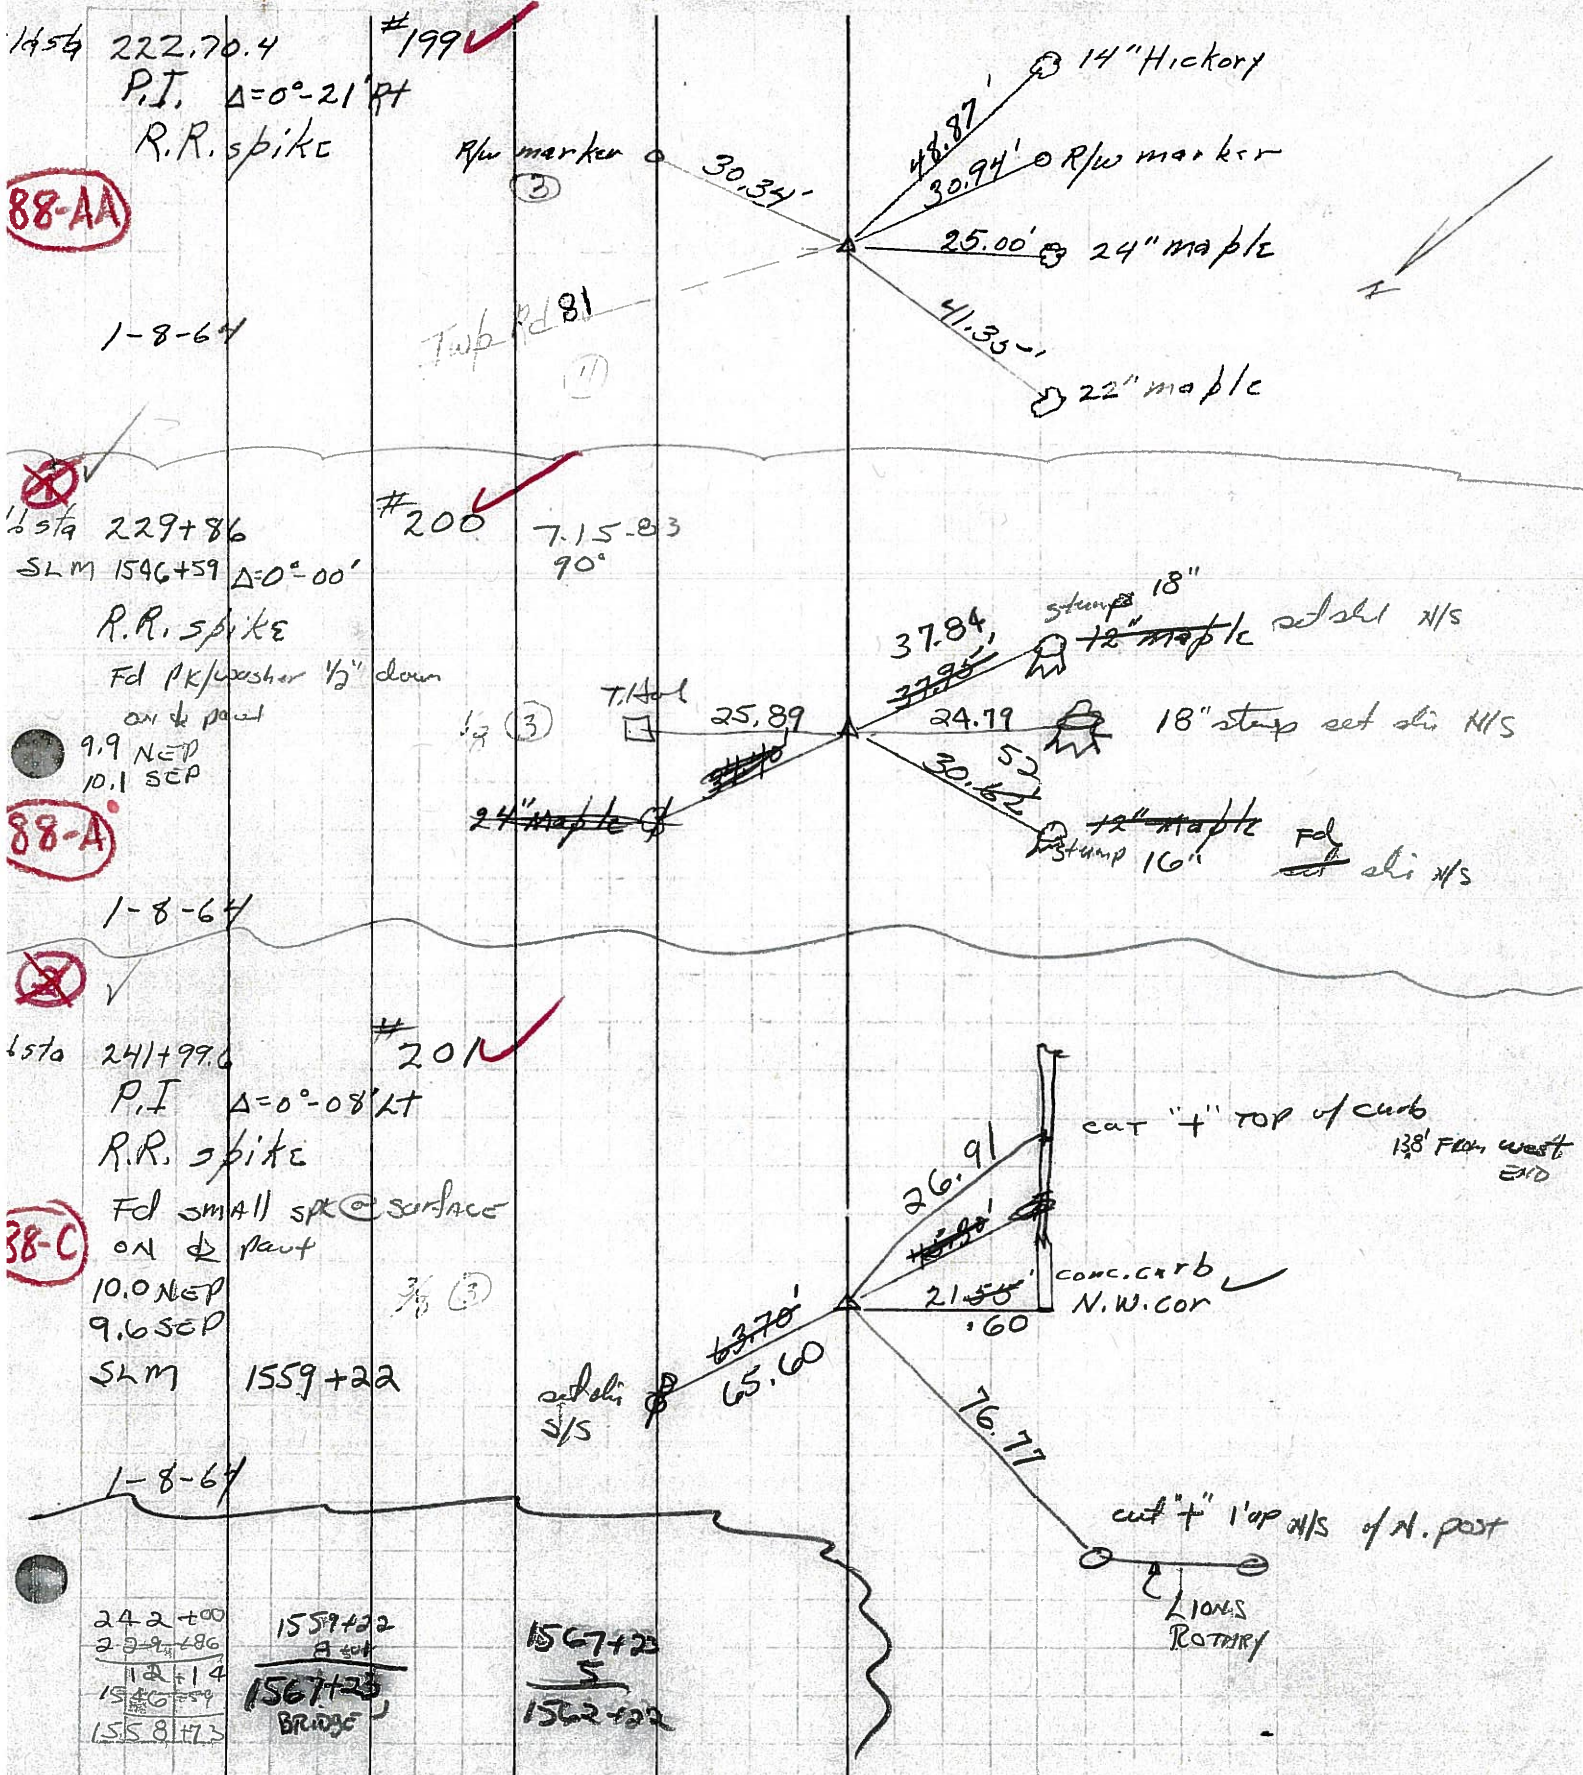 sta 222.70.4 #199
P.I. Δ=0°-21' Rt
R.R. spike
88-AA
1-8-64
R/w marker
3
30.34'
Twp Rd 81
11
48.87'
14" Hickory
30.94'
R/w marker
25.00'
24" maple
41.35'
22" maple
sta 229+86 #200
7-15-83
90°
SLM 1546+59 Δ=0°-00'
R.R. spike
Fd PK/washer 1/2" down
on ℄ paint
9.9 NEP
10.1 SEP
88-A
1-8-64
3
25.89
24" Maple
37.84'
37.95'
stump 18"
12" maple N/S
24.79
18" stump set N/S
52
30.62
12" Maple
stump 16"
Fd
set N/S
sta 241+99.6 #201
P.I Δ=0°-08' LT
R.R. spike
Fd small spk @ surface
88-C
on ℄ paint
10.0 NEP
9.6 SEP
3
SLM 1559+22
1-8-64
63.70'
65.60
S/S
26.91
cut "+" TOP of curb
138' From west
END
21.55'
.60
conc. curb
N.W. cor
76.77
cut "+" 1' up N/S of N. post
LIONS
ROTARY
242+00
229+86
12+14
1546+59
1558+73
1559+22
8+01
1567+23
BRIDGE
1567+23
5
1562+22